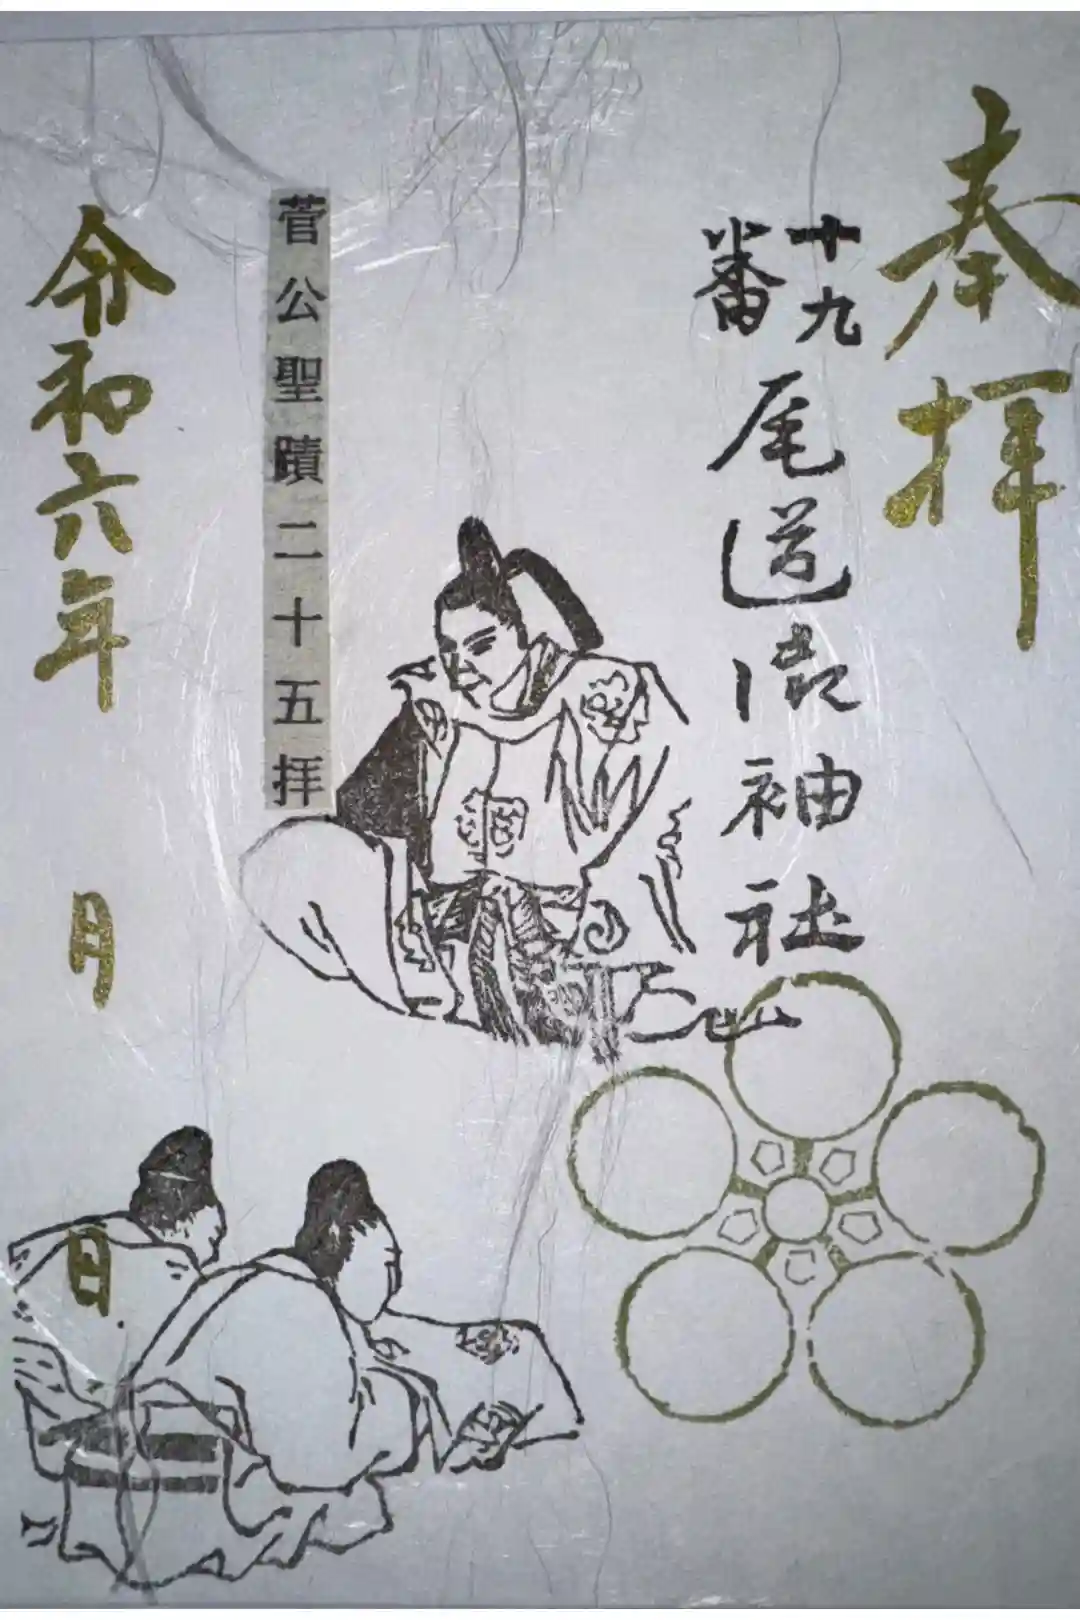 奉拝
十九番
尾道御袖社
菅公聖蹟二十五拝
令和六年
月
日